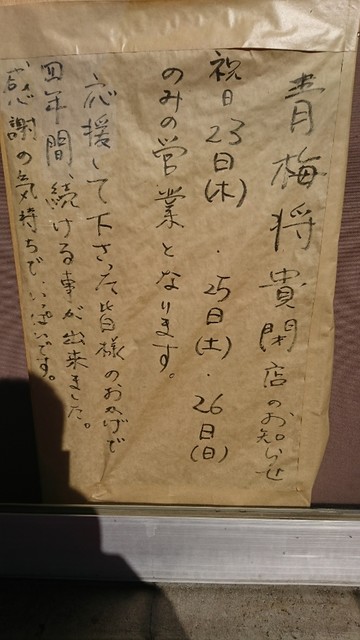 青梅将貴閉店のお知らせ
祝日23日(木)・25日(土)・26日(日)
のみの営業となります。
応援して下さった皆様のおかげで
四年間、続ける事が出来ました。
感謝の気持ちでいっぱいです。